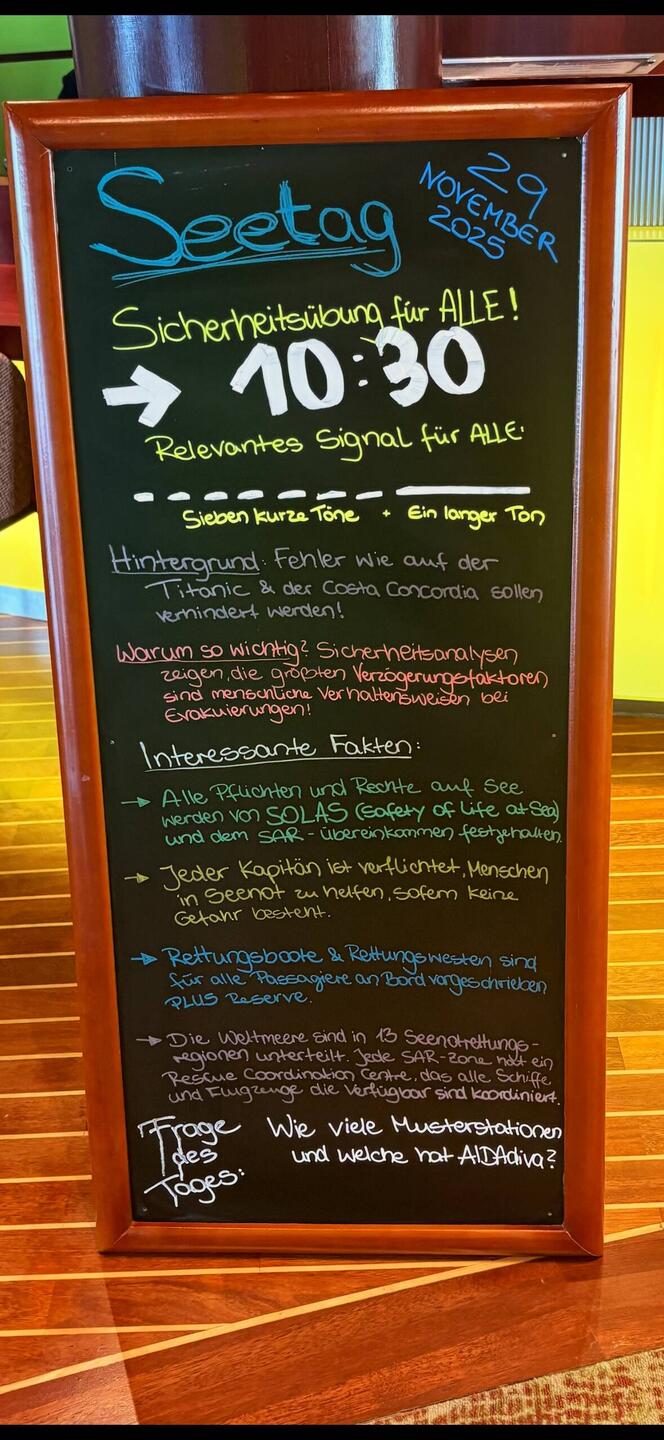 Seetag
29
NOVEMBER
2025
Sicherheitsübung für ALLE!
→ 10:30
Relevantes Signal für ALLE:
Sieben kurze Töne + Ein langer Ton
Hintergrund: Fehler wie auf der
Titanic & der Costa Concordia sollen
verhindert werden!
Warum so wichtig? Sicherheitsanalysen
zeigen, die größten Verzögerungsfaktoren
sind menschliche Verhaltensweisen bei
Evakuierungen!
Interessante Fakten:
→ Alle Pflichten und Rechte auf See
werden von SOLAS (Safety of Life at Sea)
und dem SAR-Übereinkommen festgehalten.
→ Jeder Kapitän ist verflichtet, Menschen
in Seenot zu helfen, sofern keine
Gefahr besteht.
→ Rettungsboote & Rettungswesten sind
für alle Passagiere an Bord vorgeschrieben
PLUS Reserve.
→ Die Weltmeere sind in 13 Seenotrettungs-
regionen unterteilt. Jede SAR-Zone hat ein
Rescue Coordination Centre, das alle Schiffe
und Flugzeuge die Verfügbar sind koordiniert.
Frage
des
Tages:
Wie viele Musterstationen
und welche hat AIDAdiva?